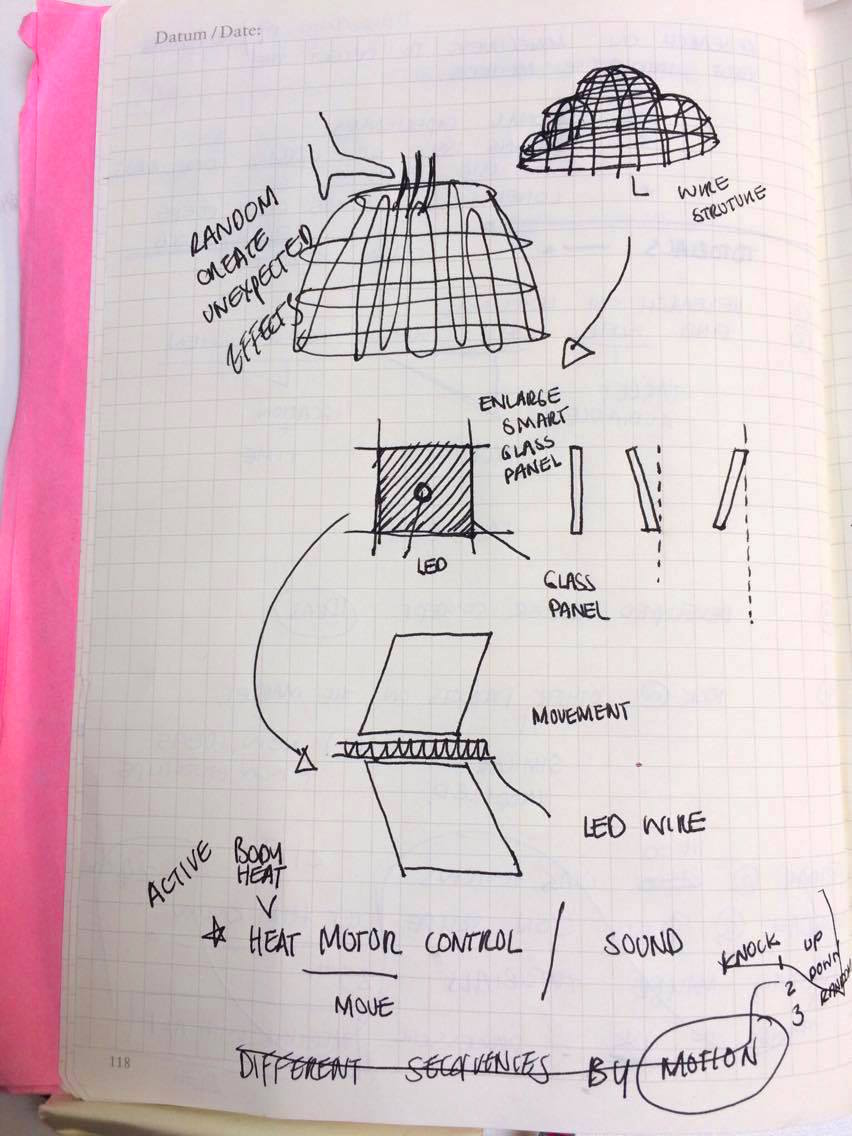 Datum / Date:
WIRE
STRUTURE
RANDOM
CREATE
UNEXPECTED
EFFECTS
ENLARGE
SMART
GLASS
PANEL
LED
GLASS
PANEL
MOVEMENT
LED WIRE
ACTIVE
BODY
HEAT
HEAT MOTOR CONTROL / SOUND
MOVE
KNOCK
1 UP
2 DOWN
3 RANDOM
DIFFERENT SEQUENCES BY MOTION
118